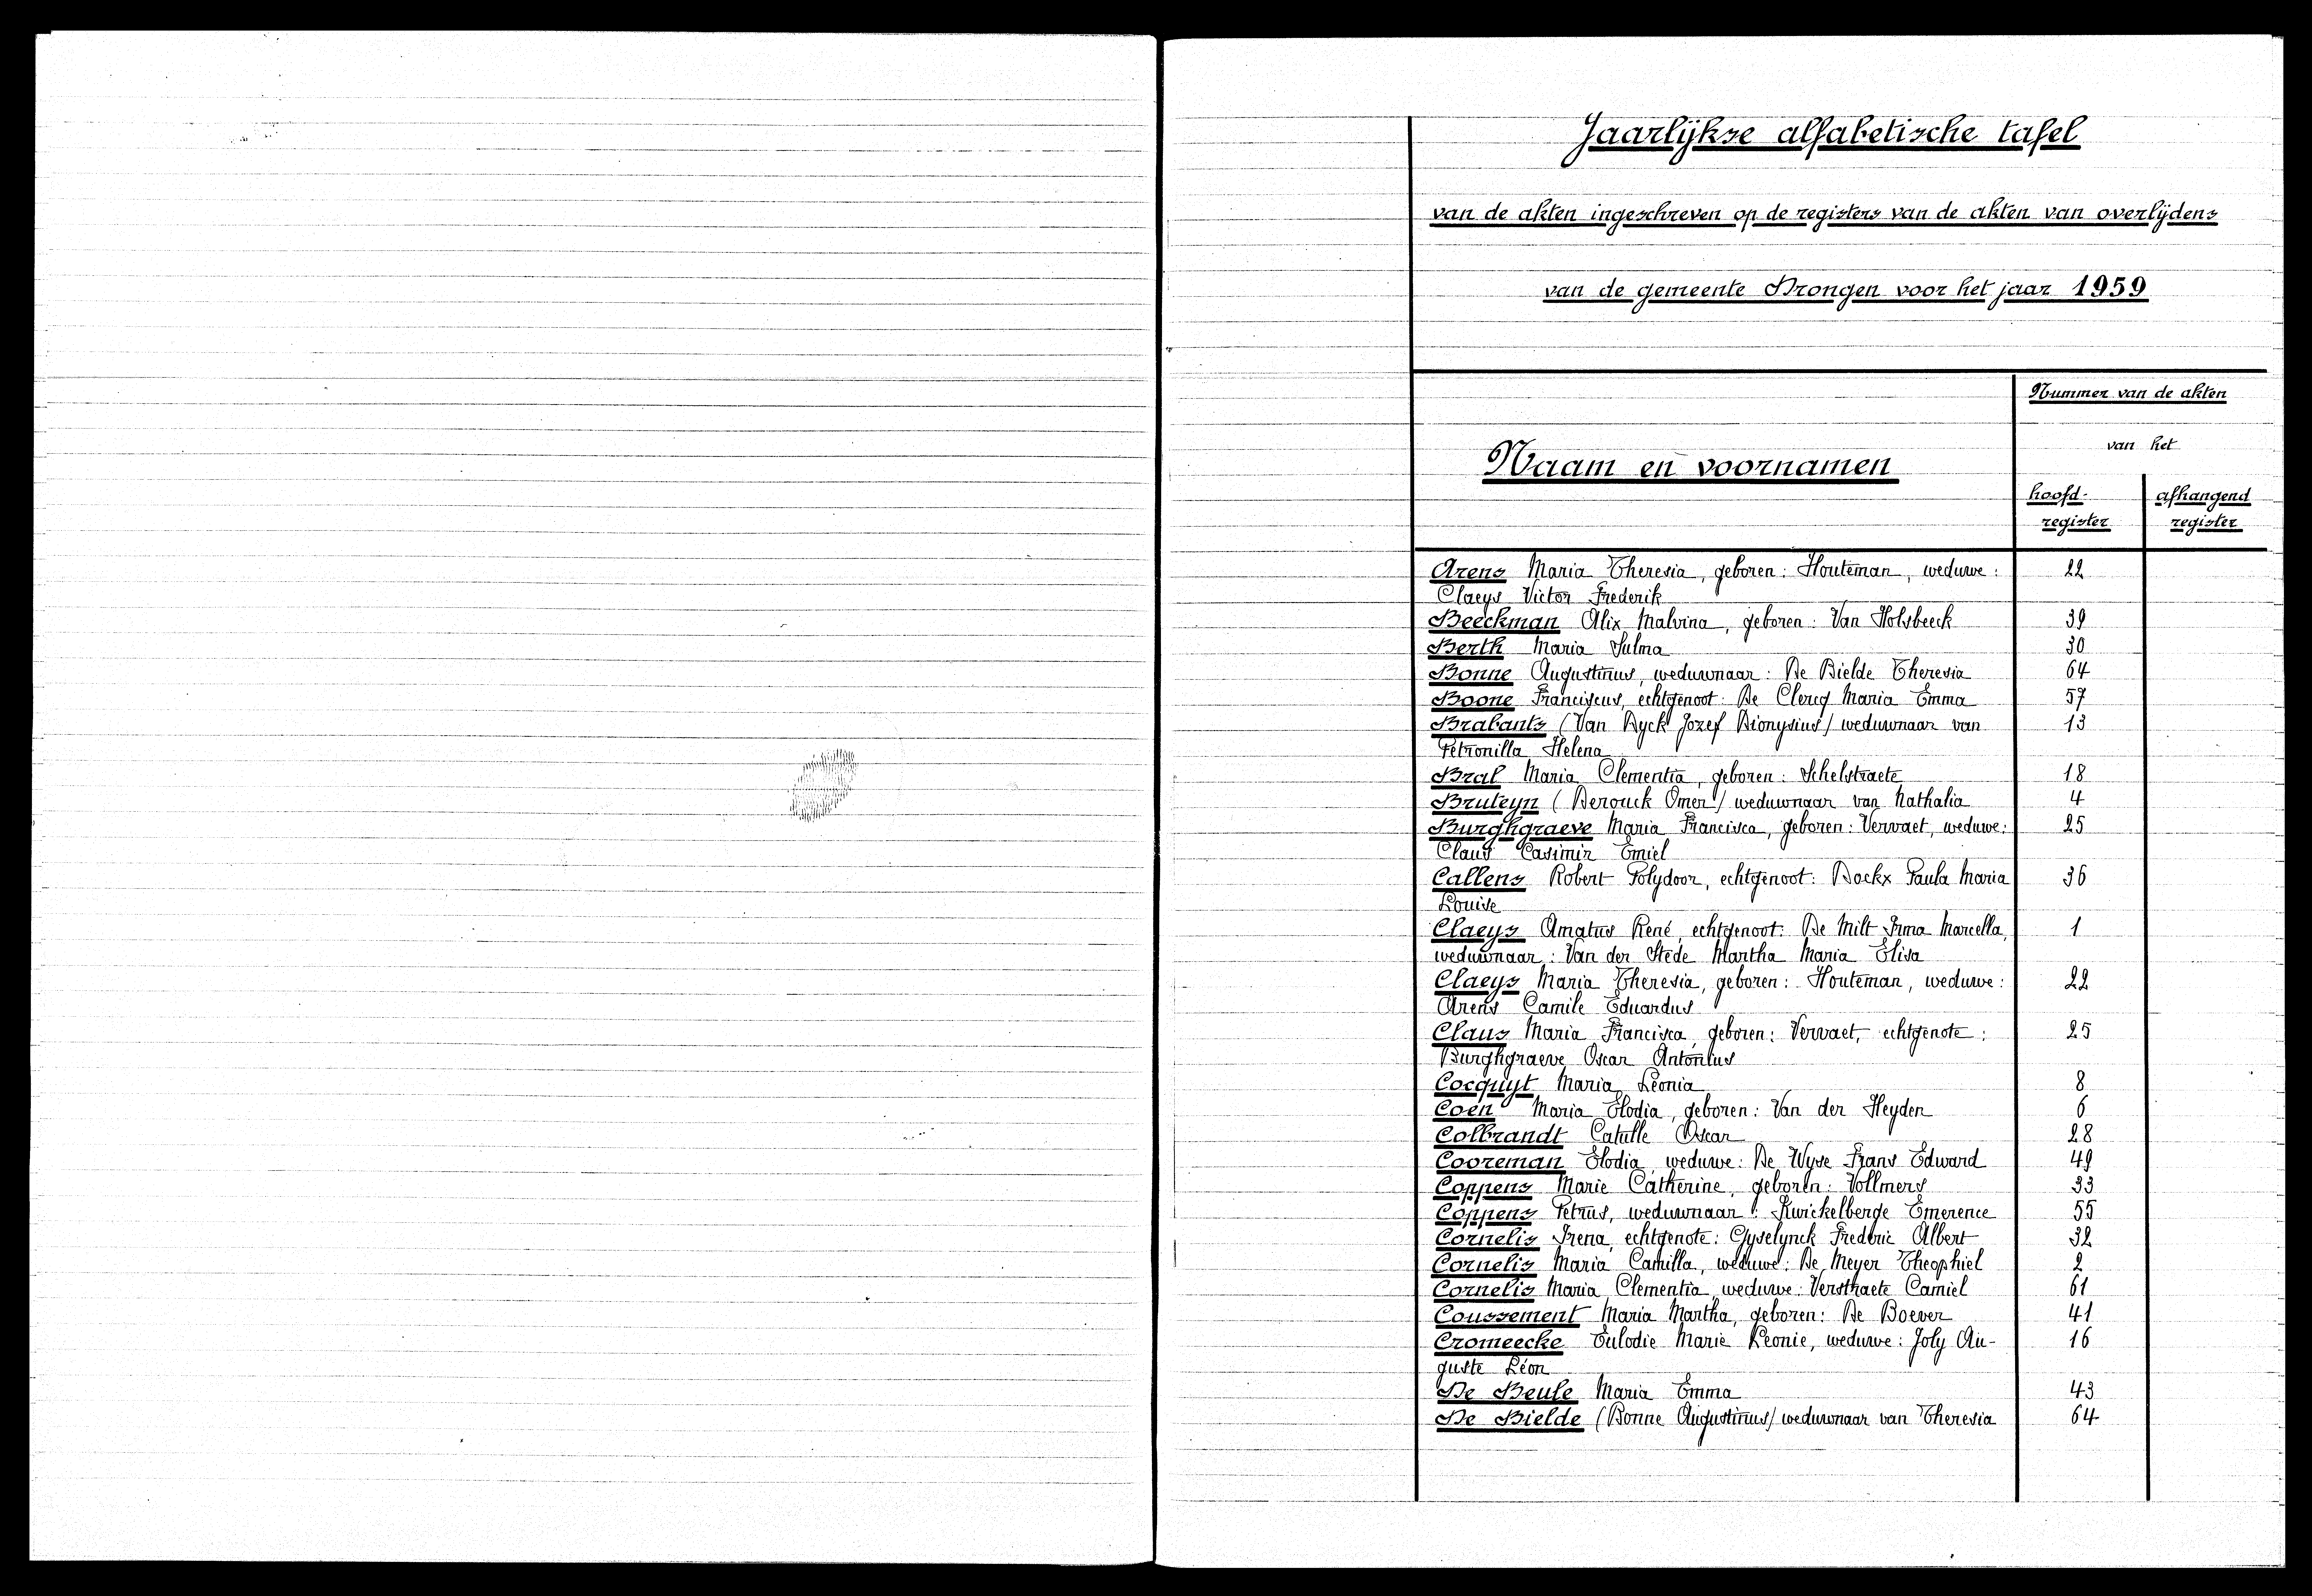 Jaarlijkse alfabetische tafel
van de akten ingeschreven op de registers van de akten van overlijdens
van de gemeente Drongen voor het jaar 1959
Nummer van de akten
van het
Naam en voornamen
hoofd- register
afhangend register
Arens Maria Theresia, geboren: Houteman, weduwe: 22
Claeys Victor Frederik
Beeckman Alix Malvina, geboren: Van Holsbeeck 39
Berth Maria Sulma 30
Bonne Augustinus, weduwnaar: De Bielde Theresia 64
Boone Franciscus, echtgenoot: De Clercq Maria Emma 57
Brabants (Van Dyck Jozef Dionysius) weduwnaar van 13
Petronilla Helena
Bral Maria Clementia, geboren: Schelstraete 18
Bruteyn (Derouck Omer) weduwnaar van Nathalia 4
Burghgraeve Maria Francisca, geboren: Vervaet, weduwe: 25
Claus Casimir Emiel
Callens Robert Polydoor, echtgenoot: Dockx Paula Maria 36
Louise
Claeys Amatus René, echtgenoot: De Milt Irma Marcella, 1
weduwnaar: Van der Stede Martha Maria Elisa
Claeys Maria Theresia, geboren: Houteman, weduwe: 22
Arens Camile Eduardus
Claus Maria Francisca, geboren: Vervaet, echtgenote: 25
Burghgraeve Oscar Antonius
Cocquyt Maria Leonia 8
Coen Maria Elodia, geboren: Van der Heyden 6
Colbrandt Catulle Oscar 28
Cooreman Elodia, weduwe: De Wyse Frans Edward 49
Coppens Marie Catherine, geboren: Vollmers 33
Coppens Petrus, weduwnaar: Kwickelberge Emerence 55
Cornelis Irena, echtgenote: Gyselynck Frederic Albert 32
Cornelis Maria Camilla, weduwe: De Meyer Theophiel 2
Cornelis Maria Clementia, weduwe: Verstraete Camiel 61
Coussement Maria Martha, geboren: De Boever 41
Cromeecke Eulodie Marie Leonie, weduwe: Joly Au- 16
guste Léon
De Beule Maria Emma 43
De Bielde (Bonne Augustinus) weduwnaar van Theresia 64